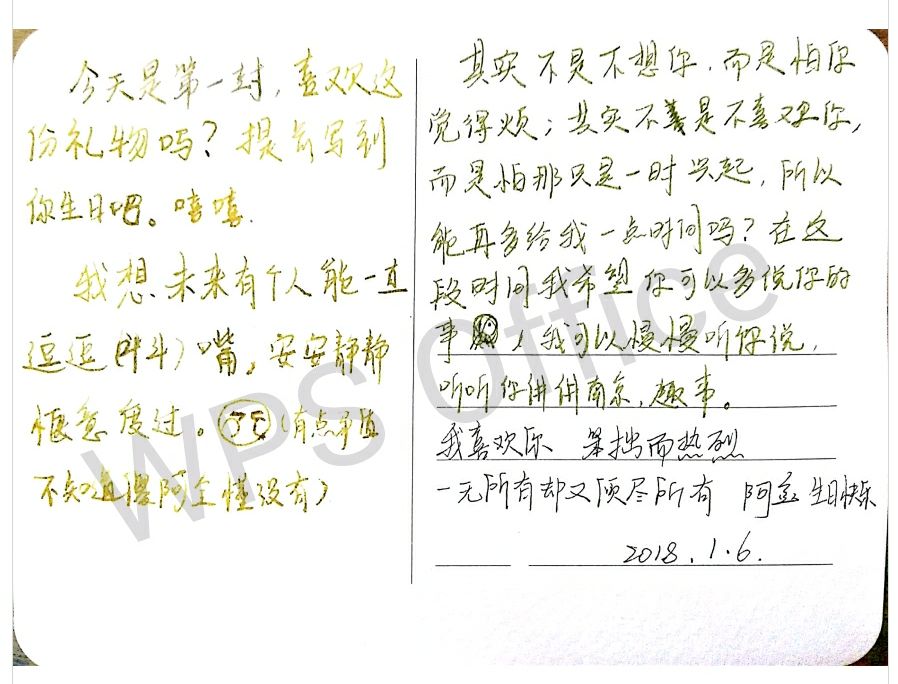 今天是第一封，喜欢这
份礼物吗？提前写到
你生日吧。嘻嘻.
我想未来有个人能一直
逗逗(斗)嘴，安安静静
惬意度过。(有点矛盾
不知道傻阿 懂没有)
其实不是不想你，而是怕你
觉得烦；其实不是不喜欢你，
而是怕那只是一时兴起，所以
能再多给我一点时间吗？在这
段时间我希望你可以多说你的
事，我可以慢慢听你说，
听听你讲讲南京，趣事。
我喜欢你 笨拙而热烈
一无所有却又倾尽所有 阿 生日快乐
2018.1.6.
WPS Office